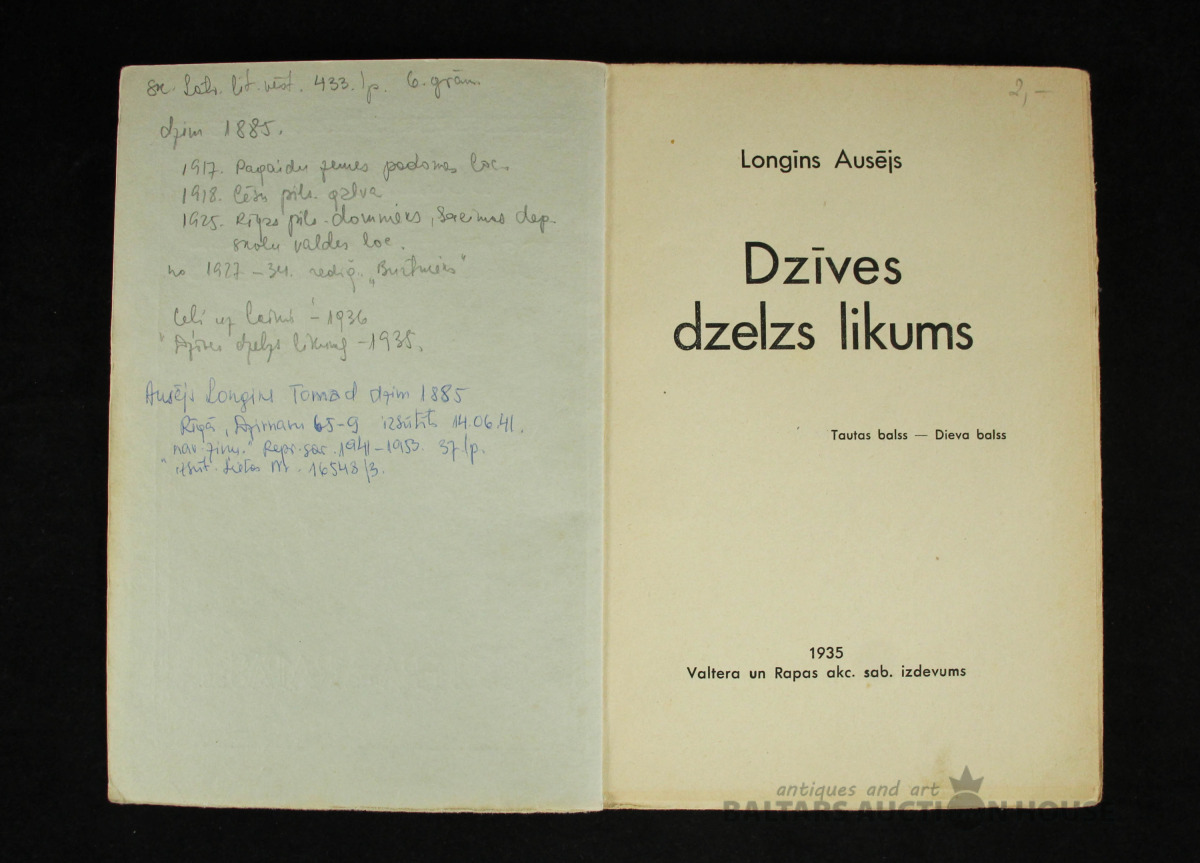 sk. Latv. lit. vēst. 433. lp. 6. grām.
dzim 1885.
1917. Pagaidu zemes padomes loc.
1918. Cēsu pils. galva
1925. Rīgas pils. domnieks, Saeimas dep.
skolu valdes loc.
no 1927-34. rediģ. „Burtnieks"
Ceļi uz laimi - 1936
"Dzīves dzelzs likums - 1935.
Ausējs Longins Tomass dzim 1885
Rīgā, Dzirnavu 65-9 izsūtīts 14.06.41.
nav ziņu." Repr. sar. 1941-1953. 37 lp.
"izsūt. Lietas Nr. 16548/3.
2,-
Longīns Ausējs
Dzīves
dzelzs likums
Tautas balss — Dieva balss
1935
Valtera un Rapas akc. sab. izdevums
antiques and art
BALTARS AUCTION HOUSE